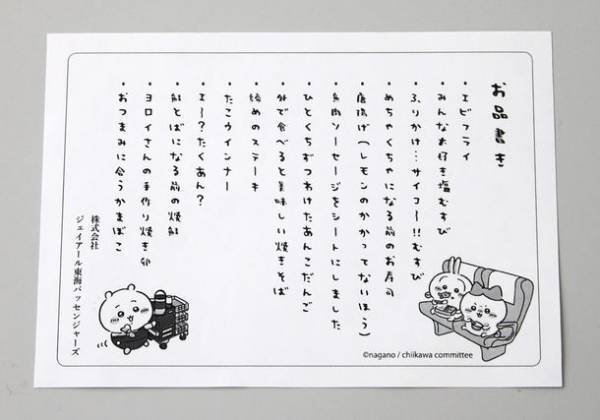 お品書き
・エビフライ
・みんなお好き塩むすび
・ふりかけ…サイコー!!むすび
・めちゃくちゃになる前のお寿司
・唐揚げ(レモンのかかってないほう)
・魚肉ソーセージをシートにしました
・ひとくちずつわけたあんこだんご
・外で食べると美味しい焼きそば
・締めのステーキ
・たこウインナー
・エー?たくあん?
・鮭とばになる前の焼鮭
・ヨロイさんの手作り焼き卵
・おつまみに合うかまぼこ
株式会社
ジェイアール東海パッセンジャーズ
©nagano / chiikawa committee